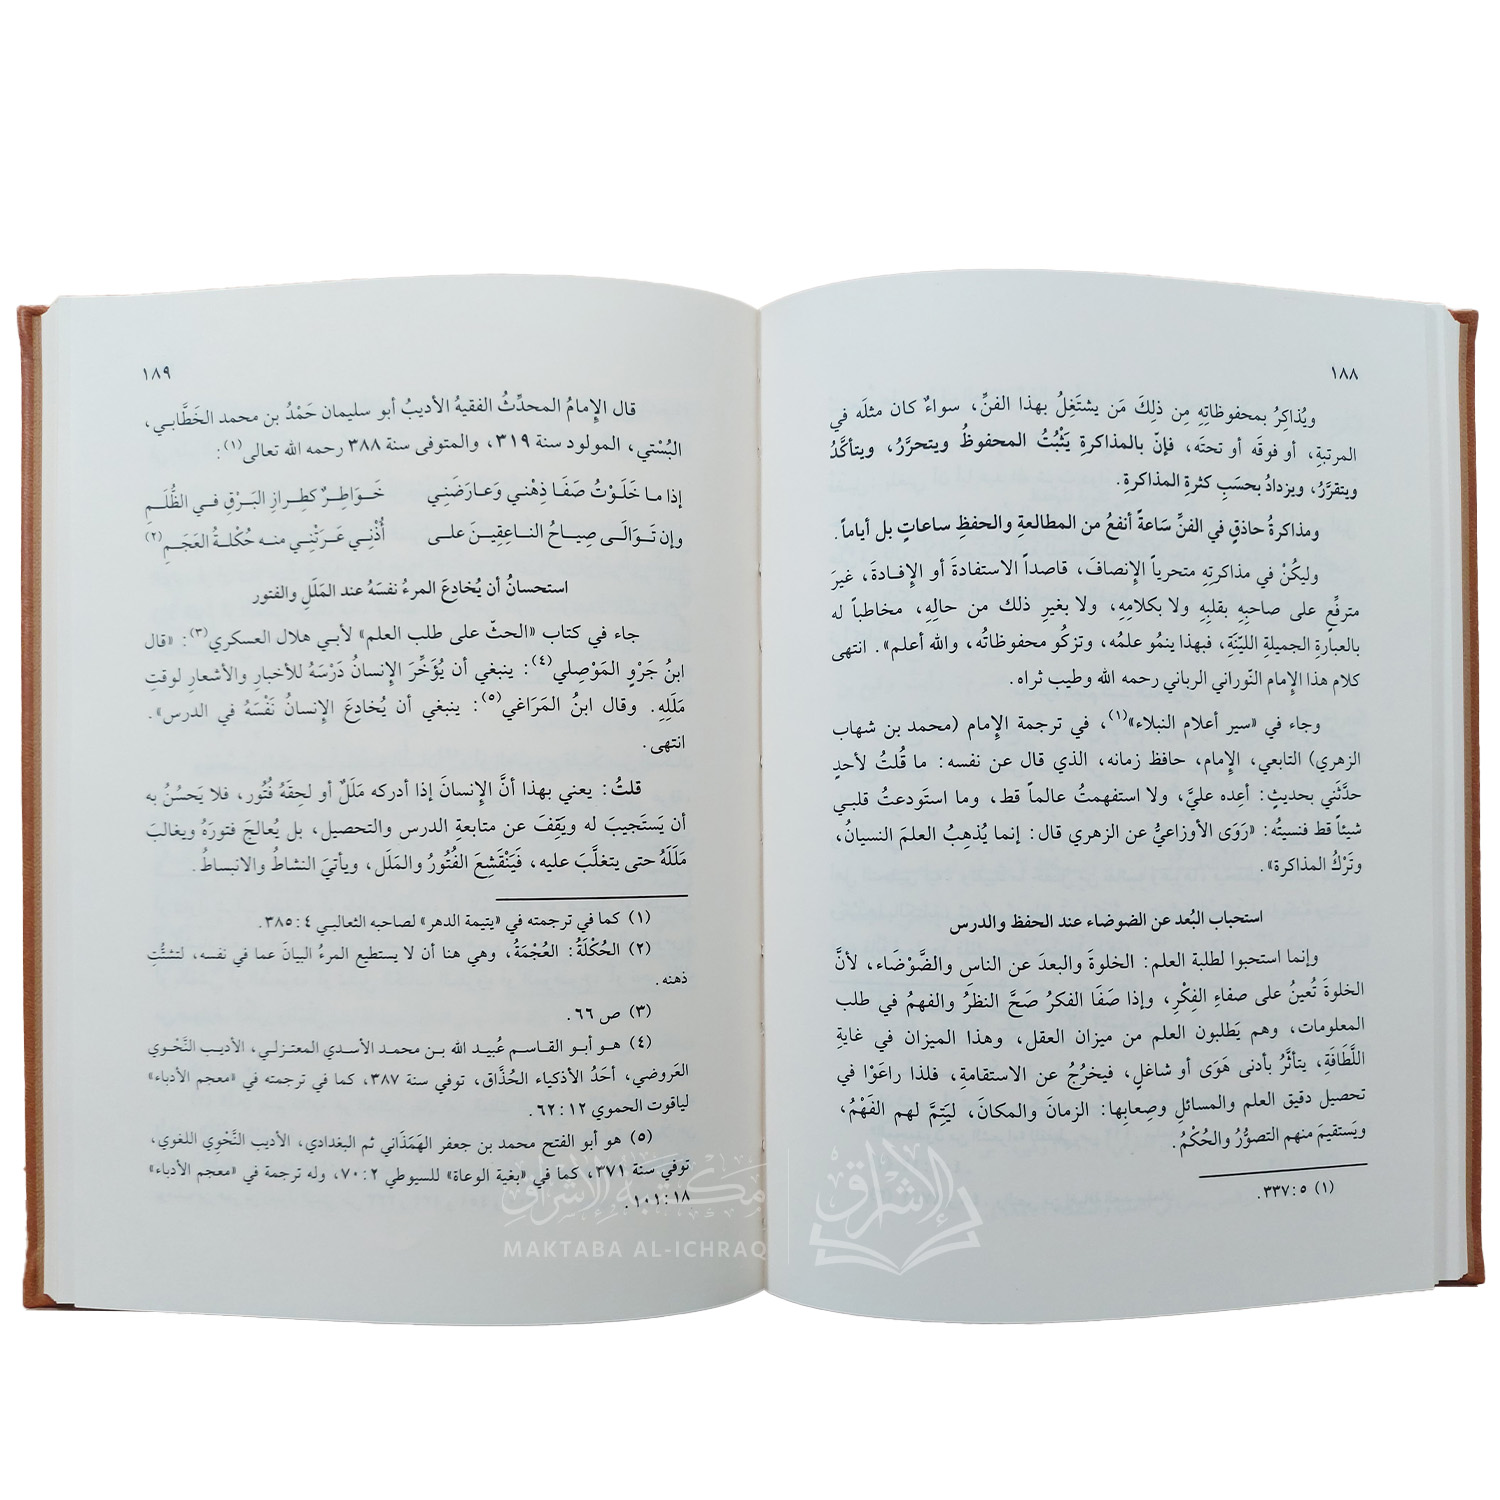 ١٨٨
ويُذاكِرُ بمحفوظاتِهِ مِن ذلِكَ مَن يشتَغِلُ بهذا الفنِّ، سواءٌ كان مثلَه في
المرتبةِ، أو فوقَه أو تحتَه، فإنّ بالمذاكرةِ يَثْبُتُ المحفوظُ ويتحرَّرُ، ويتأكَّدُ
ويتقرَّرُ، ويزدادُ بحسَبِ كثرةِ المذاكرةِ.
ومذاكرةُ حاذقٍ في الفنِّ سَاعةً أنفعُ من المطالعةِ والحفظِ ساعاتٍ بل أياماً.
وليكُنْ في مذاكرتِهِ متحرياً الإِنصافَ، قاصداً الاستفادةَ أو الإِفادةَ، غيرَ
مترفِّعٍ على صاحبِهِ بقلبِهِ ولا بكلامِهِ، ولا بغيرِ ذلك من حالِهِ، مخاطباً له
بالعبارةِ الجميلةِ الليّنَةِ، فبهذا ينمُو علمُه، وتزكُو محفوظاتُه، والله أعلم». انتهى
كلام هذا الإِمام النّوراني الرباني رحمه الله وطيب ثراه.
وجاء في «سير أعلام النبلاء»(١)، في ترجمة الإِمام (محمد بن شهاب
الزهري) التابعي، الإِمام، حافظ زمانه، الذي قال عن نفسه: ما قُلتُ لأحدٍ
حدَّثَني بحديثٍ: أعِده عليَّ، ولا استفهمتُ عالماً قط، وما استَودعتُ قلبي
شيئاً قط فنسيتُه: «رَوَى الأوزاعيُّ عن الزهري قال: إنما يُذهِبُ العلمَ النسيانُ،
وتَرْكُ المذاكرة».
استحباب البُعد عن الضوضاء عند الحفظ والدرس
وإنما استحبوا لطلبة العلم: الخلوةَ والبعدَ عن الناسِ والضَّوْضَاء، لأنَّ
الخلوةَ تُعينُ على صفاءِ الفِكْرِ، وإذا صَفَا الفكرُ صَحَّ النظرُ والفهمُ في طلب
المعلومات، وهم يَطلبون العلم من ميزان العقل، وهذا الميزان في غايةِ
اللَّطَافَةِ، يتأثَّرُ بأدنى هَوَى أو شاغلٍ، فيخرُجُ عن الاستقامةِ، فلذا راعَوْا في
تحصيل دقيق العلم والمسائلِ وصِعابِها: الزمانَ والمكانَ، ليَتِمَّ لهم الفَهْمُ،
ويَستقيمَ منهم التصوُّرُ والحُكْمُ.
(١) ٥: ٣٣٧.
١٨٩
قال الإِمامُ المحدِّثُ الفقيهُ الأديبُ أبو سليمان حَمْدُ بن محمد الخَطَّابي،
البُسْتي، المولود سنة ٣١٩، والمتوفى سنة ٣٨٨ رحمه الله تعالى(١):
إذا ما خَلَوْتُ صَفَا ذِهْني وَعارَضَني خَواطِرٌ كطِرازِ البَرْقِ في الظُّلَمِ
وإن تَوَالَى صِياحُ الناعِقِينَ على أُذْني عَرَتْني منه حُكْلةُ العَجَمِ(٢)
استحسانُ أن يُخادِعَ المرءُ نفسَهُ عند المَلَلِ والفتور
جاء في كتاب «الحثّ على طلب العلم» لأبي هلال العسكري(٣): «قال
ابنُ جَرْوٍ المَوْصِلي(٤): ينبغي أن يُؤَخِّرَ الإِنسانُ دَرْسَهُ للأخبارِ والأشعارِ لوقتِ
مَلَلِهِ. وقال ابنُ المَرَاغي(٥): ينبغي أن يُخادِعَ الإِنسانُ نَفْسَهُ في الدرس».
انتهى.
قلتُ: يعني بهذا أنَّ الإِنسانَ إذا أدركه مَلَلٌ أو لحِقَهُ فُتُور، فلا يَحسُنُ به
أن يَستَجيبَ له ويَقِفَ عن متابعةِ الدرس والتحصيل، بل يُعالجَ فتورَهُ ويغالبَ
مَلَلَهُ حتى يتغلَّبَ عليه، فيَنْقَشِعَ الفُتُورُ والمَلَل، ويأتيَ النشاطُ والانبساطُ.
(١) كما في ترجمته في «يتيمة الدهر» لصاحبه الثعالبي ٤: ٣٨٥.
(٢) الحُكْلَةُ: العُجْمَةُ، وهي هنا أن لا يستطيع المرءُ البيانَ عما في نفسه، لتشتُّتِ
ذهنه.
(٣) ص ٦٦.
(٤) هو أبو القاسم عُبيد الله بن محمد الأسدي المعتزلي، الأديب النَّحْوي
العَروضي، أحَدُ الأذكياء الحُذَّاق، توفي سنة ٣٨٧، كما في ترجمته في «معجم الأدباء»
لياقوت الحموي ١٢: ٦٢.
(٥) هو أبو الفتح محمد بن جعفر الهَمَذَاني ثم البغدادي، الأديب النَّحْوي اللغوي،
توفي سنة ٣٧١، كما في «بغية الوعاة» للسيوطي ٢: ٧٠، وله ترجمة في «معجم الأدباء»
١٨: ١٠١.
مكتبة الإشراق
MAKTABA AL-ICHRAQ
الإشراق